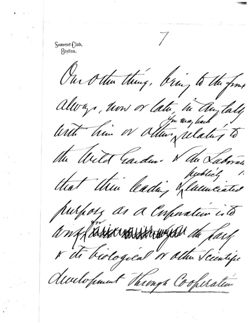 Somerset Club,
Boston.
7
One other thing, bring to the front
always, now or late, in any talk
you may have
with him or others, relative to
the Wild Gardens & the Laboratories
publicly
that their leading & enunciated
purpose as a Corporation is to
the park
& its biological or other Scientific
development through Cooperation